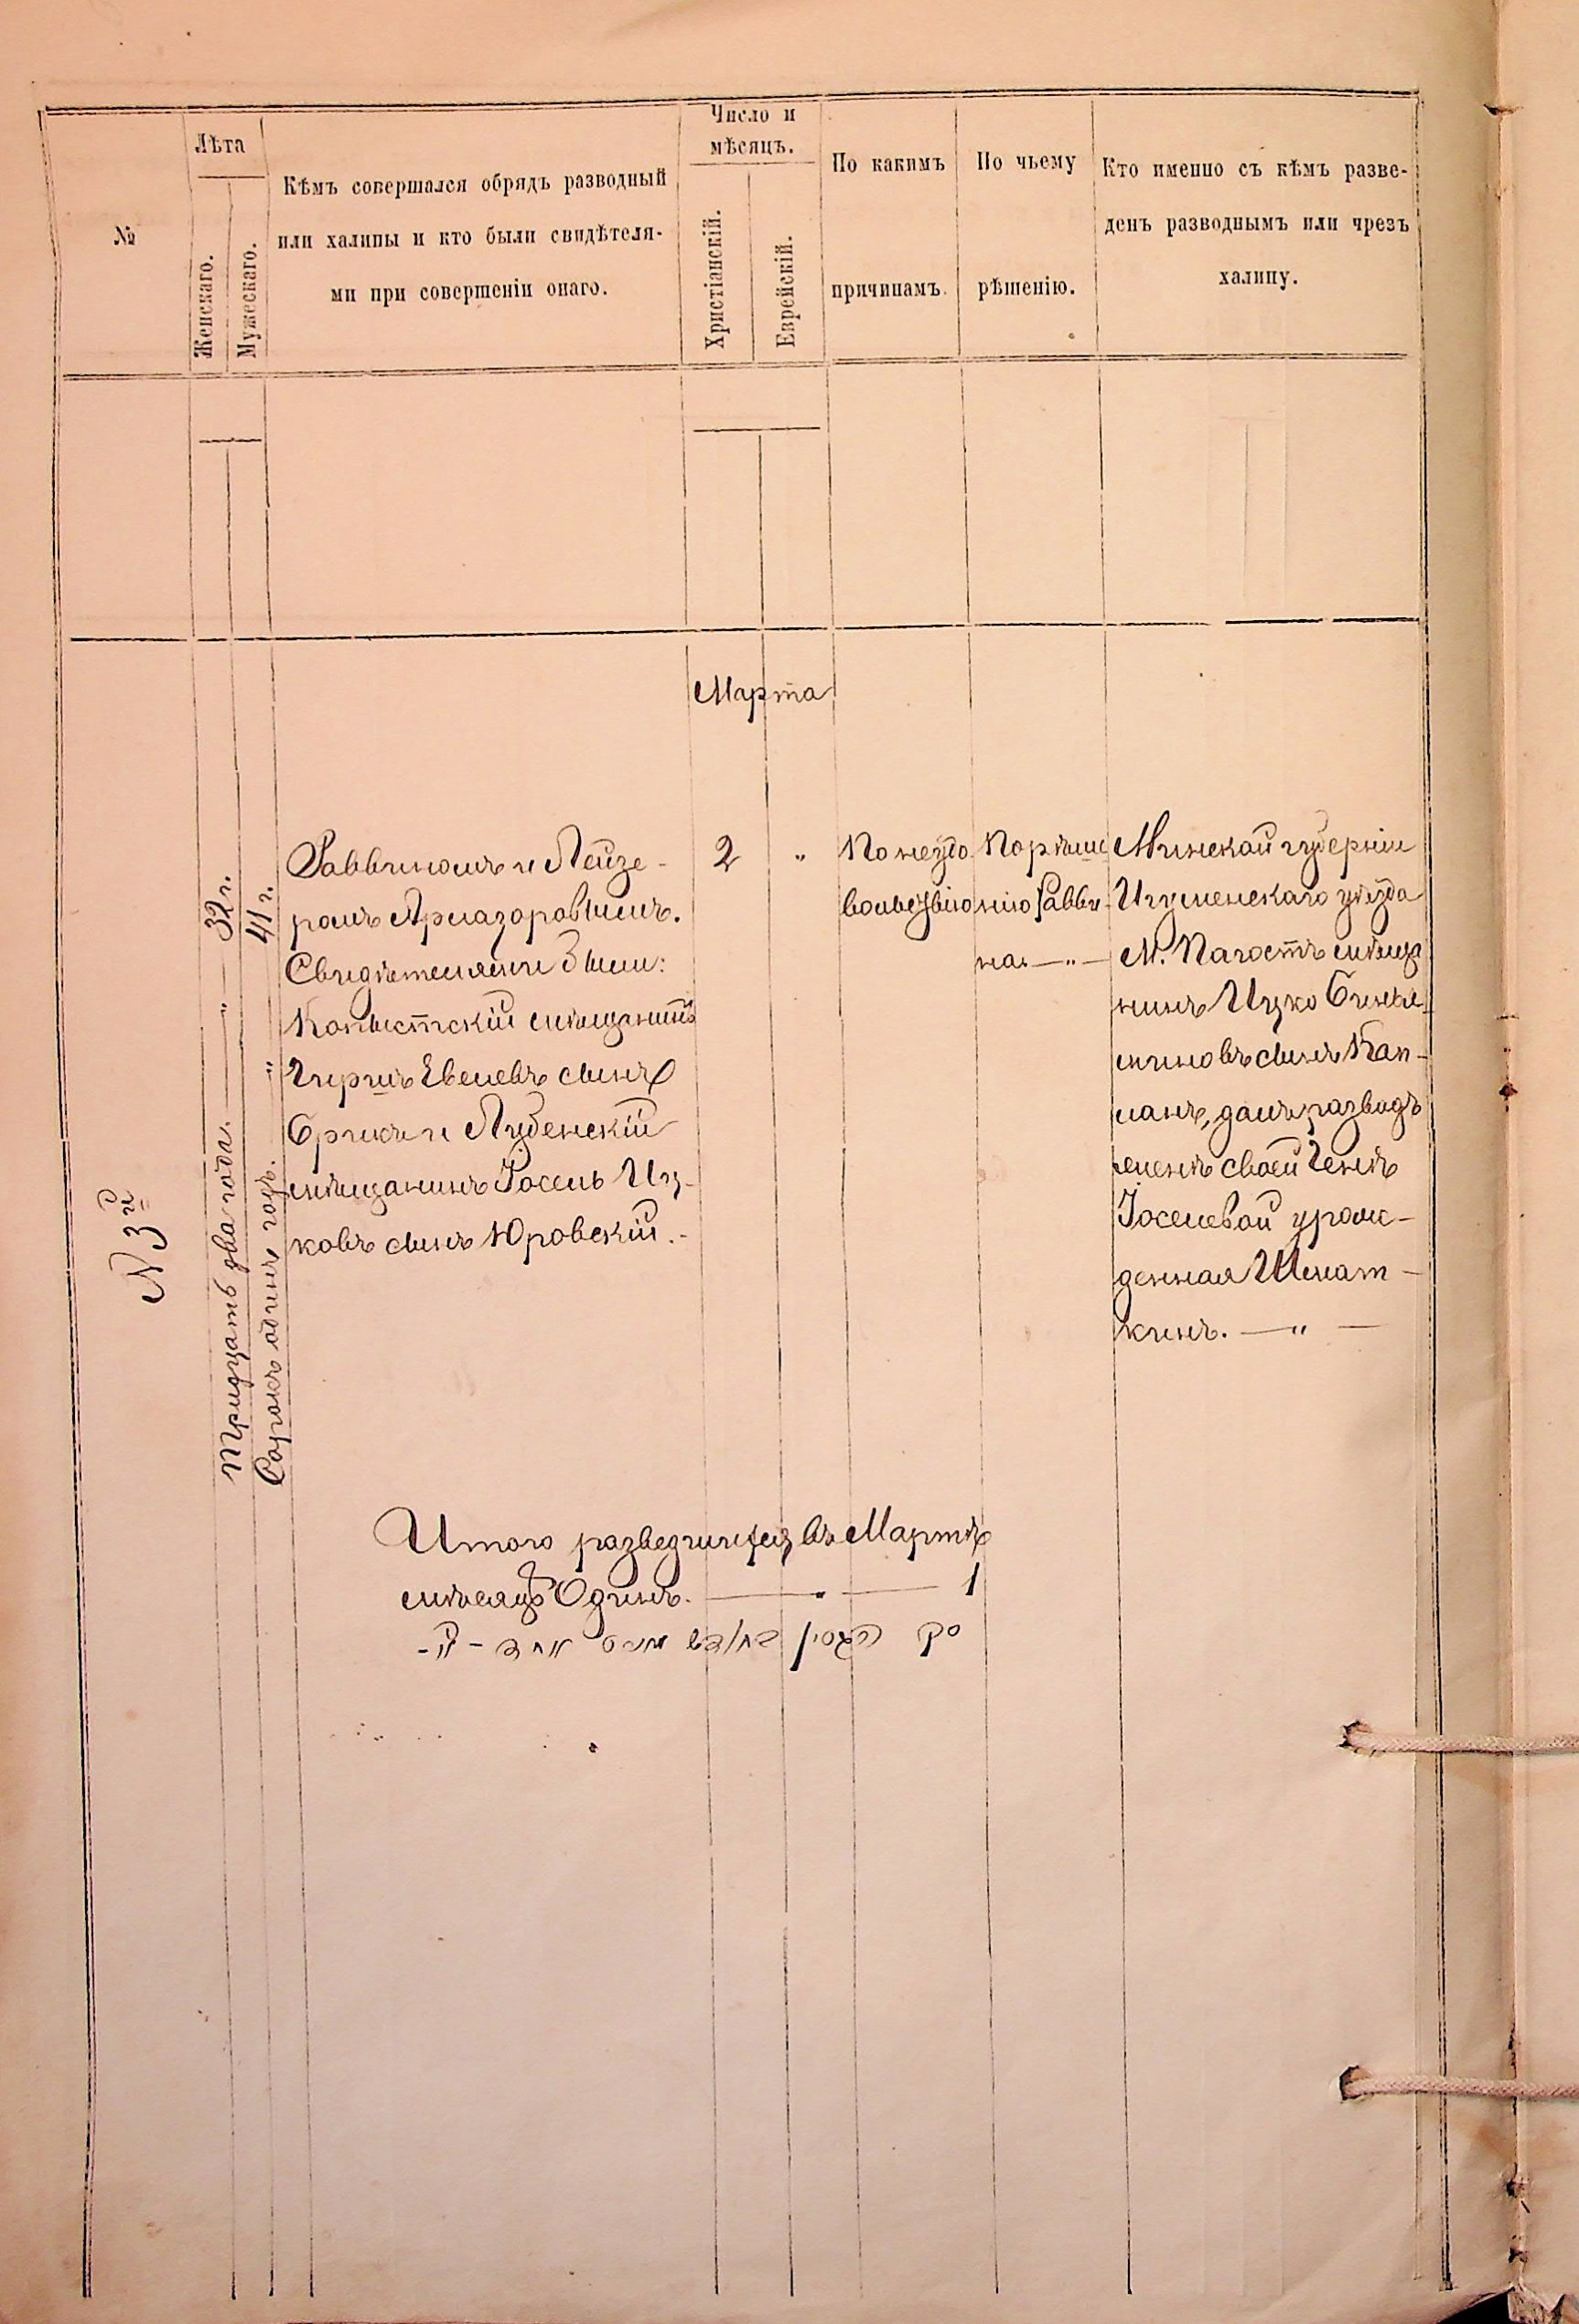 №
Лѣта
Женскаго.
Мужескаго.
Кѣмъ совершался обрядъ разводный
или халицы и кто были свидѣтеля-
ми при совершеніи онаго.
Число и
мѣсяцъ.
Христіанскій.
Еврейскій.
По какимъ
причинамъ.
По чьему
рѣшенію.
Кто именно съ кѣмъ разве-
денъ разводнымъ или чрезъ
халицу.
Марта
№ 3й
Тридцать два года. — „ — 32 г.
Сорокъ одинъ годъ. „ 41 г.
Раввиномъ и Лейзе-
ромъ Армазоровымъ.
Свидѣтелями были:
Копыстскій мѣщанинъ
Гиршъ Евелевъ сынъ
Брикъ и Лубенскій
мѣщанинъ Іосель Иц-
ковъ сынъ Юровскій.-
2
„
По неудо
вольствію
По рѣше
нію Равви-
на. — „ —
Минской губерніи
Игуменскаго уѣзда
М. Пагостъ мѣща
нинъ Ицко Биные-
миновъ сынъ Кап-
ланъ, далъ разводъ
женѣ своей Генѣ
Іоселевой урож-
денная Шмат-
кинъ. — „ —
Итого въ Мартѣ
мѣсяцѣ Одинъ. — „ — 1
סך